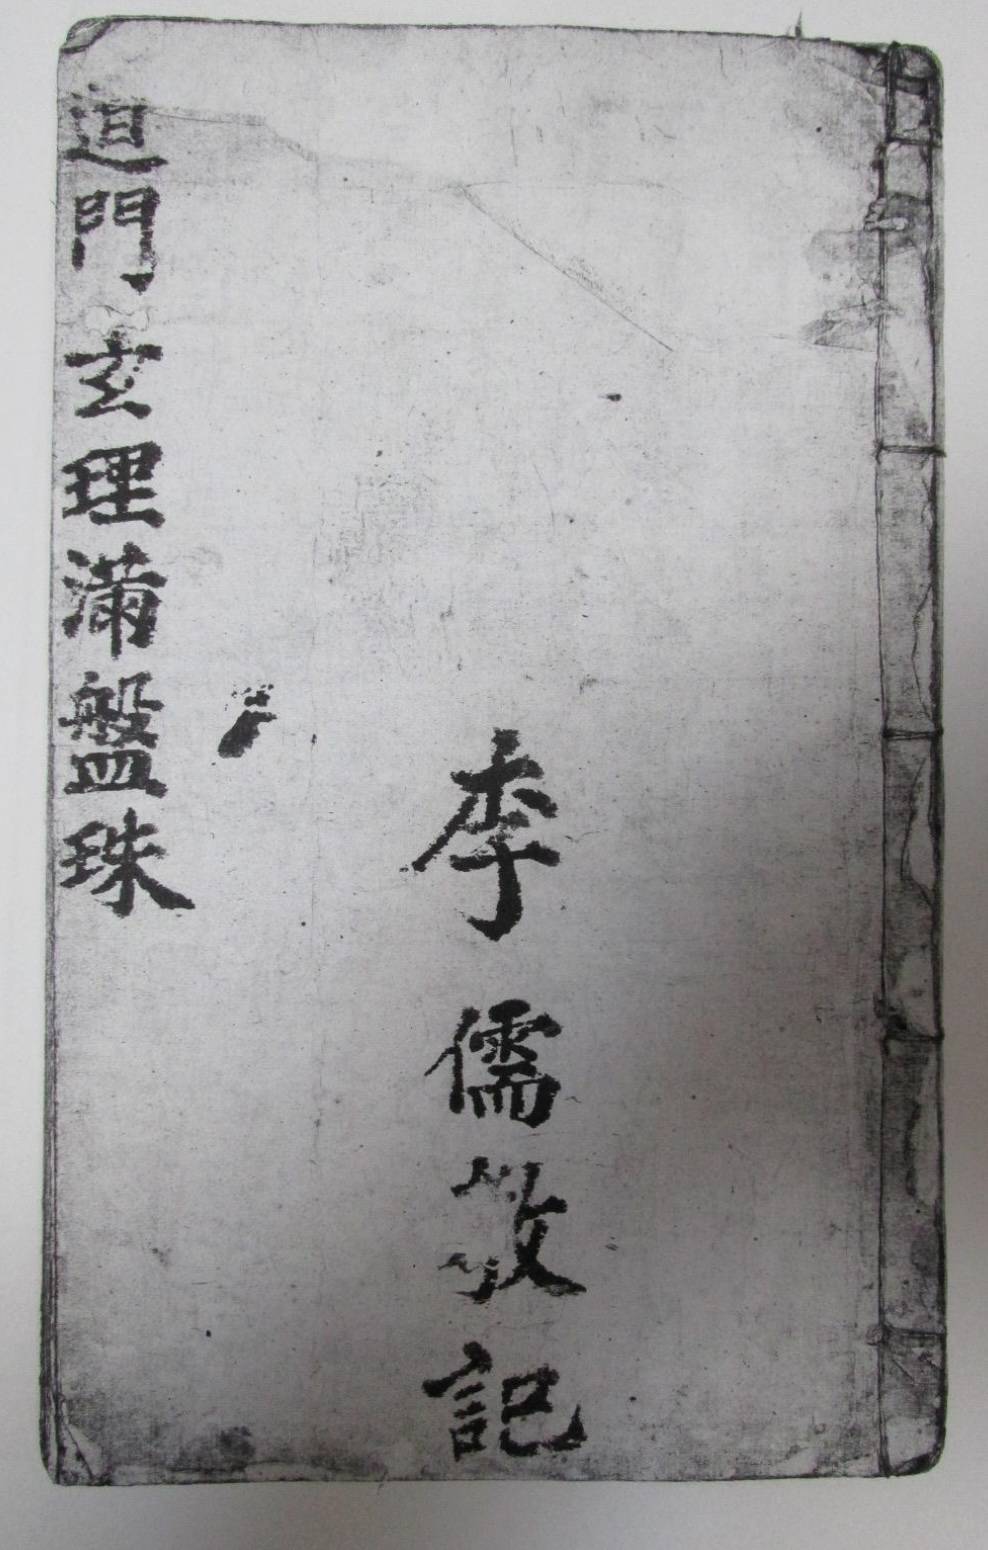 李儒記
道門玄理滿盤珠